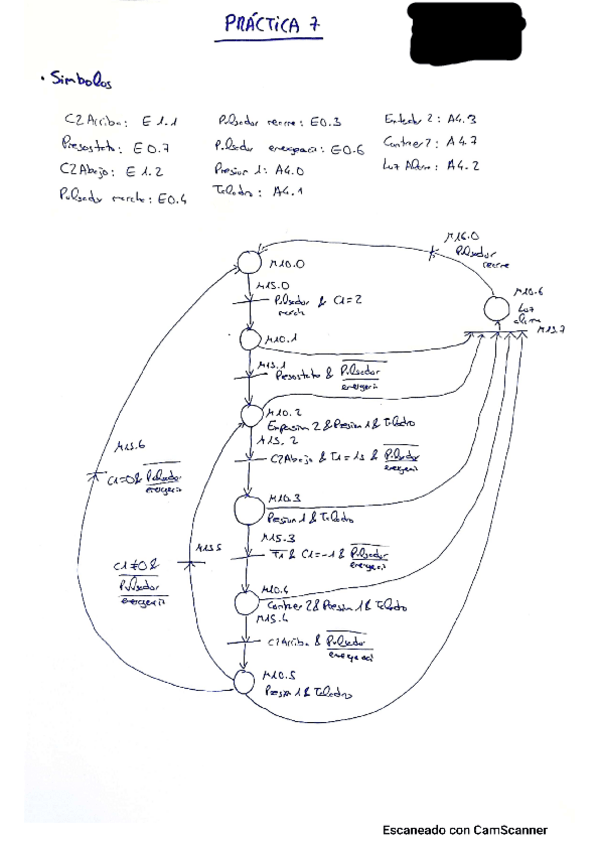 PRÁCTICA 7
• Símbolos
C2Arriba: E 1.1
Presostato: E0.7
C2Abajo: E 1.2
Pulsador marcha: E0.4
Pulsador rearme: E0.3
Pulsador emergencia: E0.6
Presion 1: A4.0
Taladro: A4.1
Extender 2: A4.3
Contraer 2: A4.7
Luz Alarma: A4.2
M16.0
Pulsador rearme
M10.0
M15.0
Pulsador marcha & C1=2
M10.6
Luz alarma
M15.7
M10.1
M15.1
Presostato & Pulsador emergencia
M10.2
2 & Presion 1 & Taladro
M15.2
C2Abajo & T1=1s & Pulsador emergencia
M15.6
C1=0 & Pulsador emergencia
M10.3
Presion 1 & Taladro
M15.3
T1 & C1=-1 & Pulsador emergencia
M15.5
C1≠0 & Pulsador emergencia
M10.4
Contraer 2 & Presion 1 & Taladro
M15.4
C2Arriba & Pulsador emergencia
M10.5
Presion 1 & Taladro
Escaneado con CamScanner